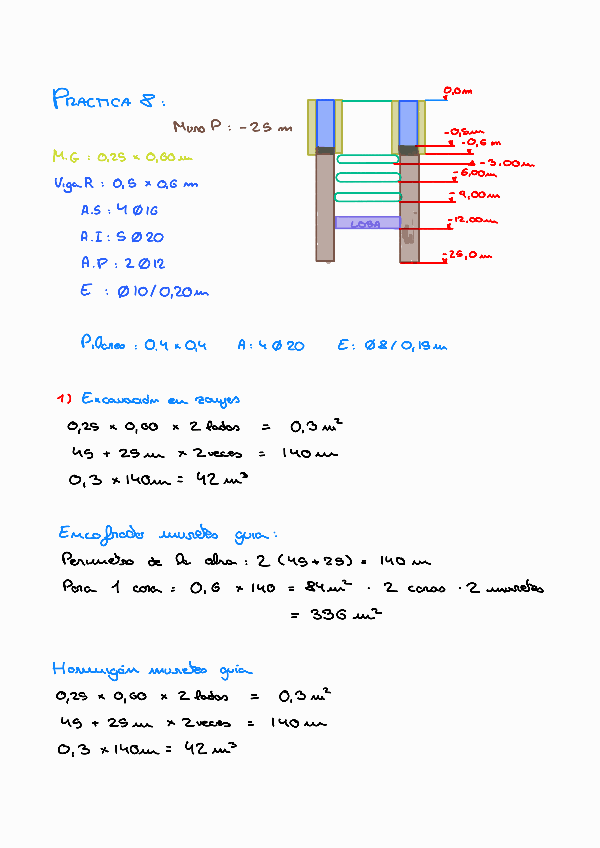 PRACTICA 8:
Muro P: -25 m
M.G: 0,25 x 0,60 m
Viga R: 0,5 x 0,6 m
A.S: 4 Ø 16
A.I: 5 Ø 20
A.P: 2 Ø 12
E : Ø 10 / 0,20 m
0,0 m
-0,5 m
-0,6 m
-3,00 m
-6,00 m
-9,00 m
LOSA
-12,00 m
-25,0 m
Pilares: 0,4 x 0,4 A: 4 Ø 20 E: Ø 8 / 0,15 m
1) Excavación en zanjas
0,25 x 0,60 x 2 lados = 0,3 m²
45 + 25 m x 2 veces = 140 m
0,3 x 140 m = 42 m³
Encofrado muretes guia:
Perimetro de la obra: 2 (45+25) = 140 m
Para 1 cara = 0,6 x 140 = 84 m² · 2 caras · 2 muretes
= 336 m²
Hormigón muretes guia
0,25 x 0,60 x 2 lados = 0,3 m²
45 + 25 m x 2 veces = 140 m
0,3 x 140 m = 42 m³